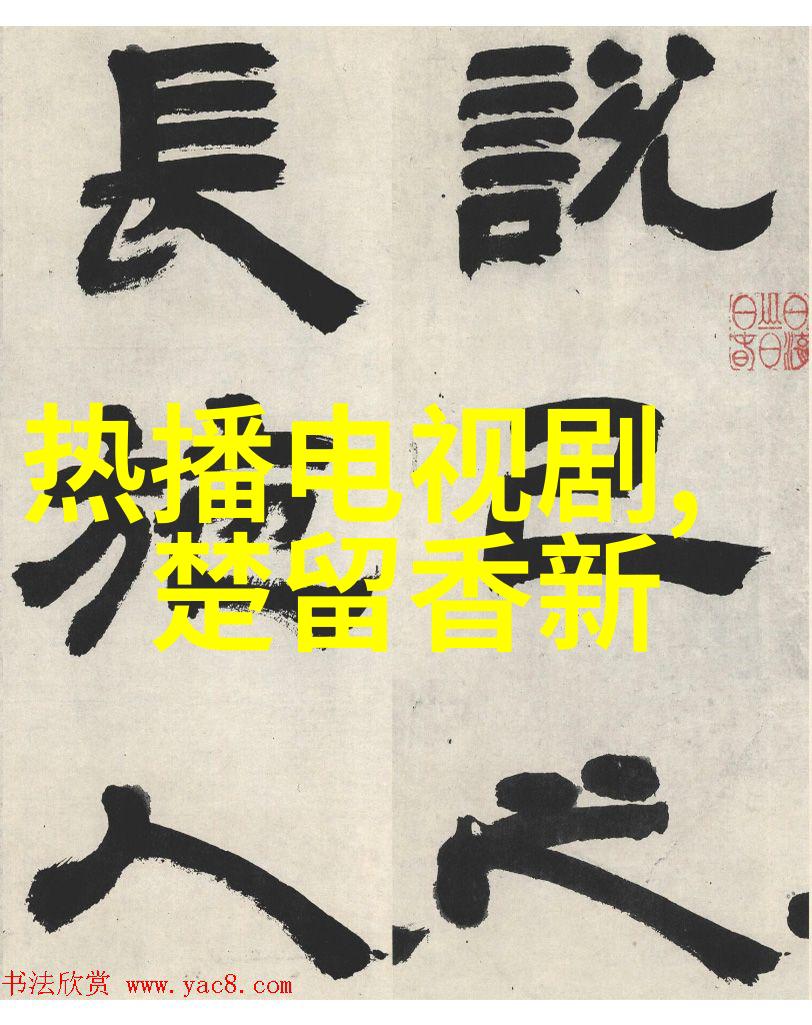 說己之
長施人
热播电视剧,
楚留香新
书法欣赏 www.yac8.com